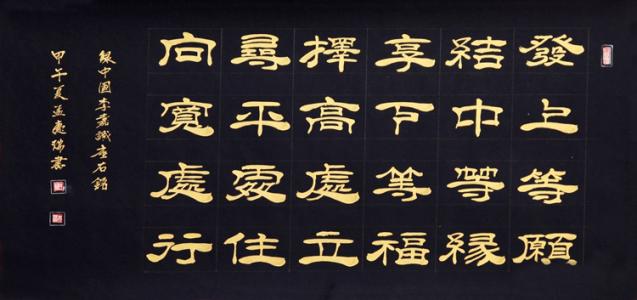 發上等願
結中等緣
享下等福
擇高處立
尋平處住
向寬處行
錄中國李嘉誠座右銘
甲午夏孟書